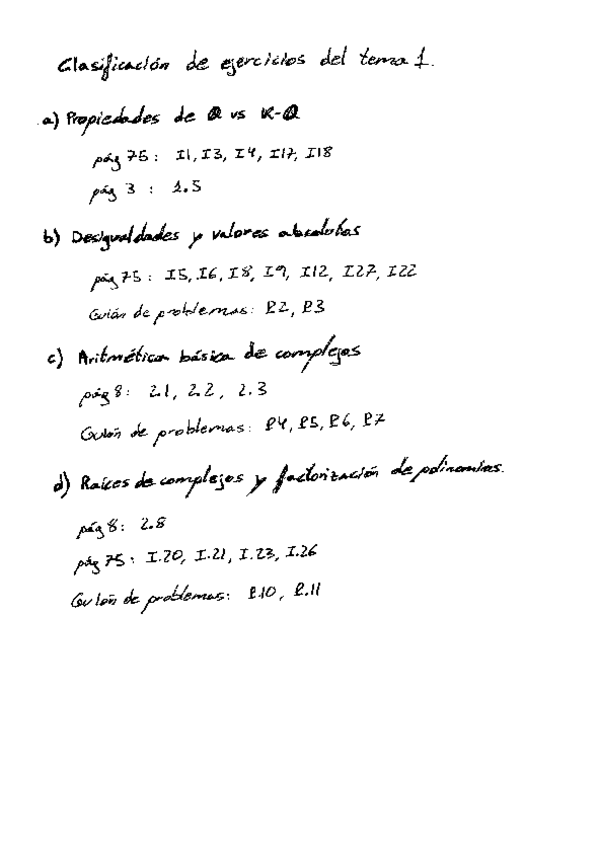 Clasificación de ejercicios del tema 1.
a) Propiedades de Q vs R-Q
pág 75: I1, I3, I4, I17, I18
pág 3 : 1.5
b) Desigualdades y valores absolutos
pág 75: I5, I6, I8, I9, I12, I27, I22
Guión de problemas: P2, P3
c) Aritmética básica de complejos
pág 8: 2.1, 2.2, 2.3
Guión de problemas: P4, P5, P6, P7
d) Raíces de complejos y factorización de polinomios.
pág 8: 2.8
pág 75: I.20, I.21, I.23, I.26
Guión de problemas: P.10, P.11